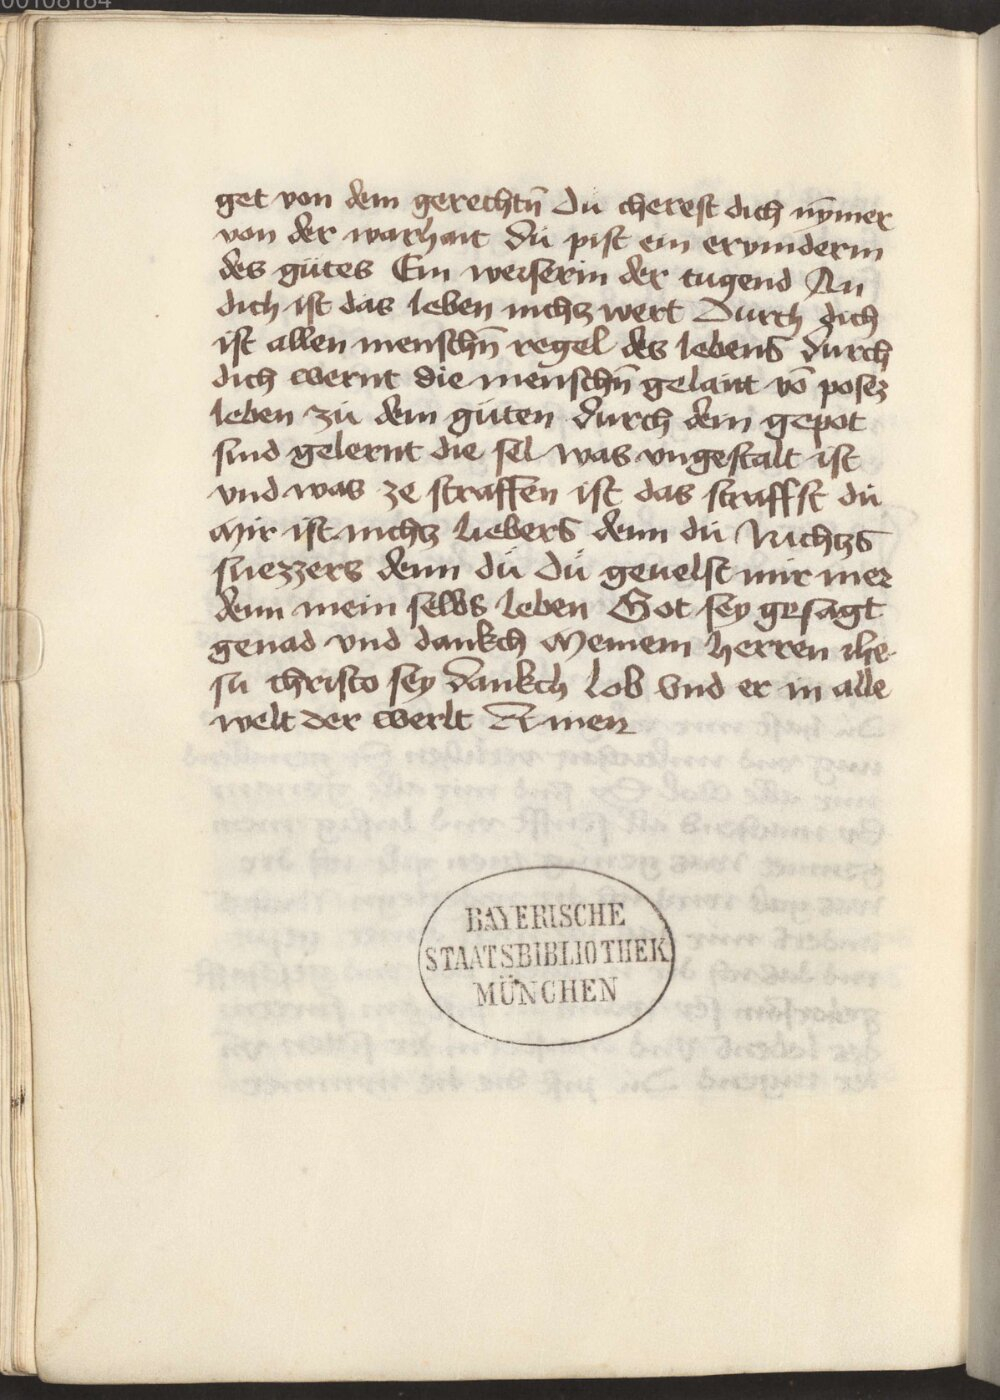 00108184
get von dem gerechtn̄ Du cherest dich nÿmer
von der warhait Dü pist ein erymderin
des gütes Ein weiserin der tugend An
dich ist das leben nichtz wert Durch dich
ist allen menschn̄ regel des lebens durch
dich wernt die menschn̄ gelaitt vō posez
leben zü dem güten durch dein gepot
sind gelernt die sel was vngestalt ist
vnd was ze straffen ist das straffst dü
Mir ist nichtz liebers denn dü Nichtzs
suezzers denn dü Dü geuelst mir mer
denn mein selbs leben Got sey gesagt
genad vnd dankch Meinem herren ihe-
su christo sey dankch lob vnd er in alle
welt der werlt Amen
BAYERISCHE
STAATSBIBLIOTHEK
MÜNCHEN